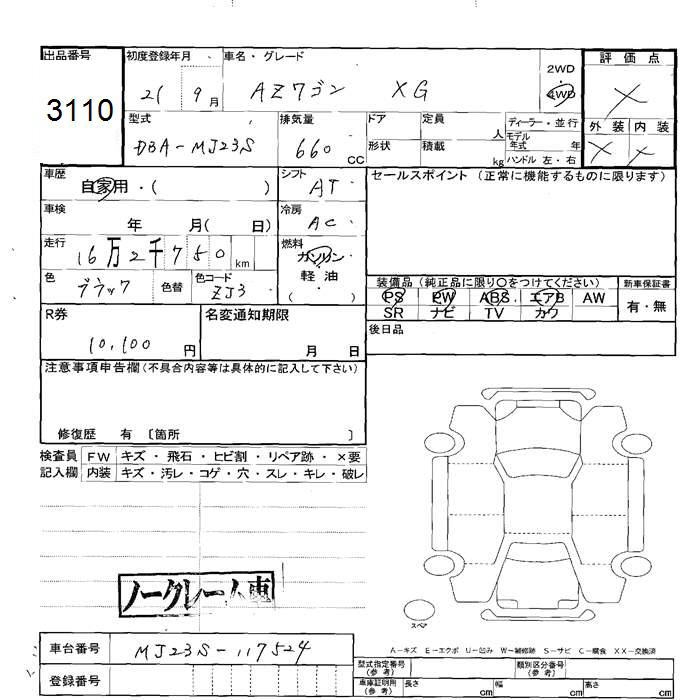 出品番号
3110
初度登録年月
21 9月
車名・グレード
AZワゴン XG
2WD
4WD
評価点
×
外装 内装
× ×
型式
DBA-MJ23S
排気量
660 CC
ドア
定員
人
ディーラー・並行
形状
積載
kg
モデル年式 年
ハンドル 左・右
車歴
自家用・( )
シフト
AT
セールスポイント (正常に機能するものに限ります)
車検
年 月( 日)
冷房
AC
走行
16万2千750km
燃料
ガソリン
軽油
( )
色
ブラック
色替
色コード
ZJ3
装備品(純正品に限り○をつけてください)
新車保証書
PS PW ABS エアB AW
SR ナビ TV カワ
有・無
R券
10,100 円
名変通知期限
月 日
後日品
注意事項申告欄(不具合内容等は具体的に記入して下さい)
修復歴 有 〔箇所 〕
検査員 FW キズ・飛石・ヒビ割・リペア跡・×要
記入欄 内装 キズ・汚レ・コゲ・穴・スレ・キレ・破レ
ノークレーム車
スペア
A-キズ E-エクボ U-凹み W-補修跡 S-サビ C-腐食 XX-交換済
車台番号
MJ23S-117524
登録番号
型式指定番号(参考)
類別区分番号(参考)
車庫証明用(参考) 長さ cm 幅 cm 高さ cm